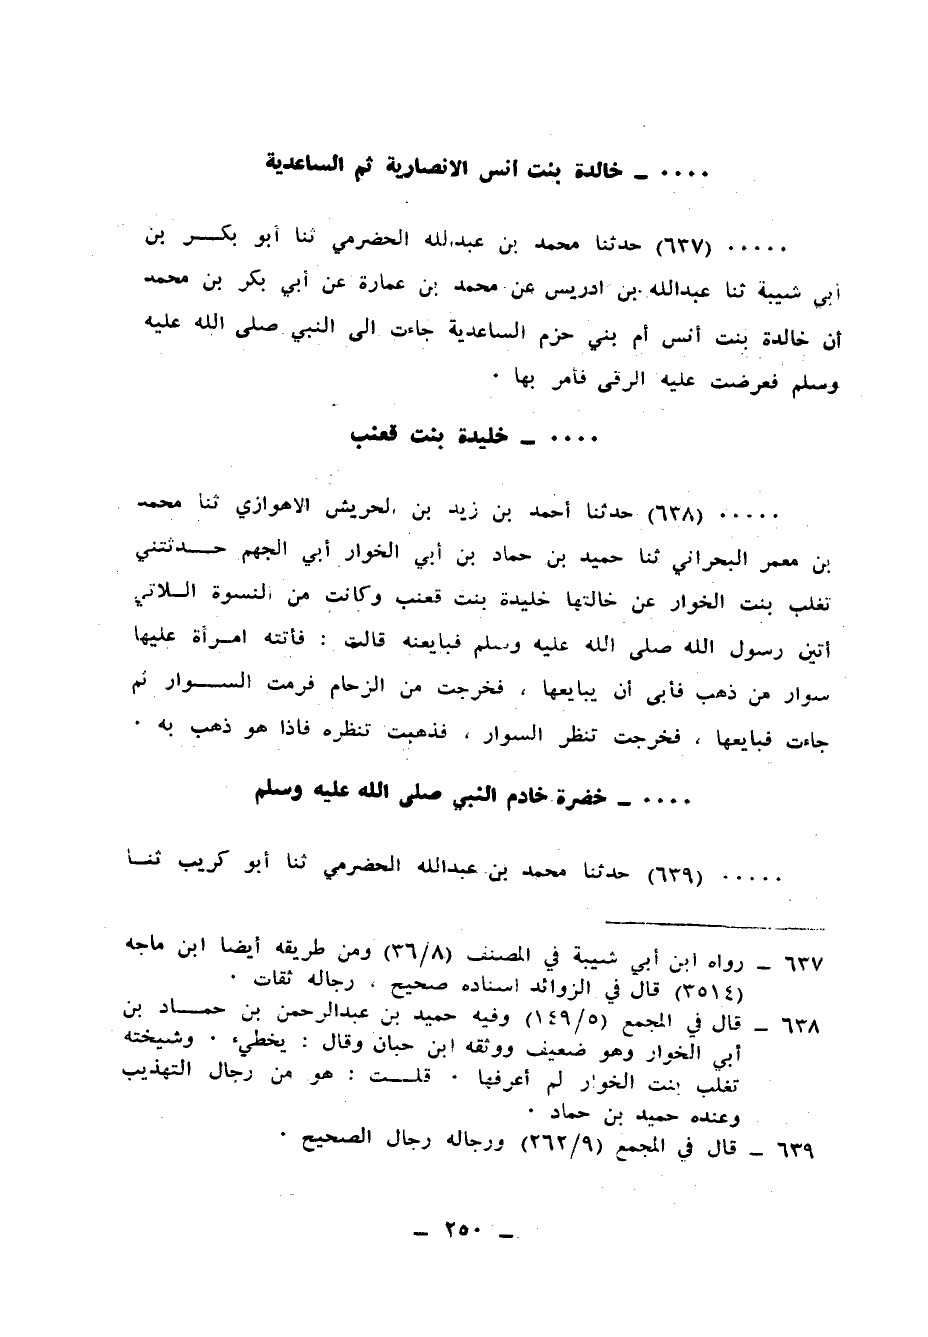 ٠٠٠٠ ــ خالدة بنت أنس الانصارية ثم الساعدية
٠٠٠٠٠ (٦٣٧) حدثنا محمد بن عبدالله الحضرمي ثنا أبو بكـــر بن
أبي شيبة ثنا عبدالله بن ادريس عن محمد بن عمارة عن أبي بكر بن محمد
أن خالدة بنت أنس أم بني حزم الساعدية جاءت الى النبي صلى الله عليه
وسلم فعرضت عليه الرقى فأمر بها ٠
٠٠٠٠ ــ خليدة بنت قعنب
٠٠٠٠٠ (٦٣٨) حدثنا أحمد بن زيد بن الحريش الاهوازي ثنا محمد
بن معمر البحراني ثنا حميد بن حماد بن أبي الخوار أبي الجهم حـــدثتني
تغلب بنت الخوار عن خالتها خليدة بنت قعنب وكانت من النسوة الــلاتي
أتين رسول الله صلى الله عليه وسلم فبايعنه قالت : فأتته امرأة عليها
سوار من ذهب فأبى أن يبايعها ، فخرجت من الزحام فرمت الســـوار ثم
جاءت فبايعها ، فخرجت تنظر السوار ، فذهبت تنظره فاذا هو ذهب به ٠
٠٠٠٠ ــ خضرة خادم النبي صلى الله عليه وسلم
٠٠٠٠٠ (٦٣٩) حدثنا محمد بن عبدالله الحضرمي ثنا أبو كريب ثنــا
٦٣٧ ــ رواه ابن أبي شيبة في المصنف (٣٦/٨) ومن طريقه أيضا ابن ماجه
(٣٥١٤) قال في الزوائد اسناده صحيح ، رجاله ثقات ٠
٦٣٨ ــ قال في المجمع (١٤٩/٥) وفيه حميد بن عبدالرحمن بن حمــاد بن
أبي الخوار وهو ضعيف ووثقه ابن حبان وقال : يخطيء ٠ وشيخته
تغلب بنت الخوار لم أعرفها ٠ قلـــت : هو من رجال التهذيب
وعنده حميد بن حماد ٠
٦٣٩ ــ قال في المجمع (٢٦٢/٩) ورجاله رجال الصحيح ٠
ــ ٢٥٠ ــ